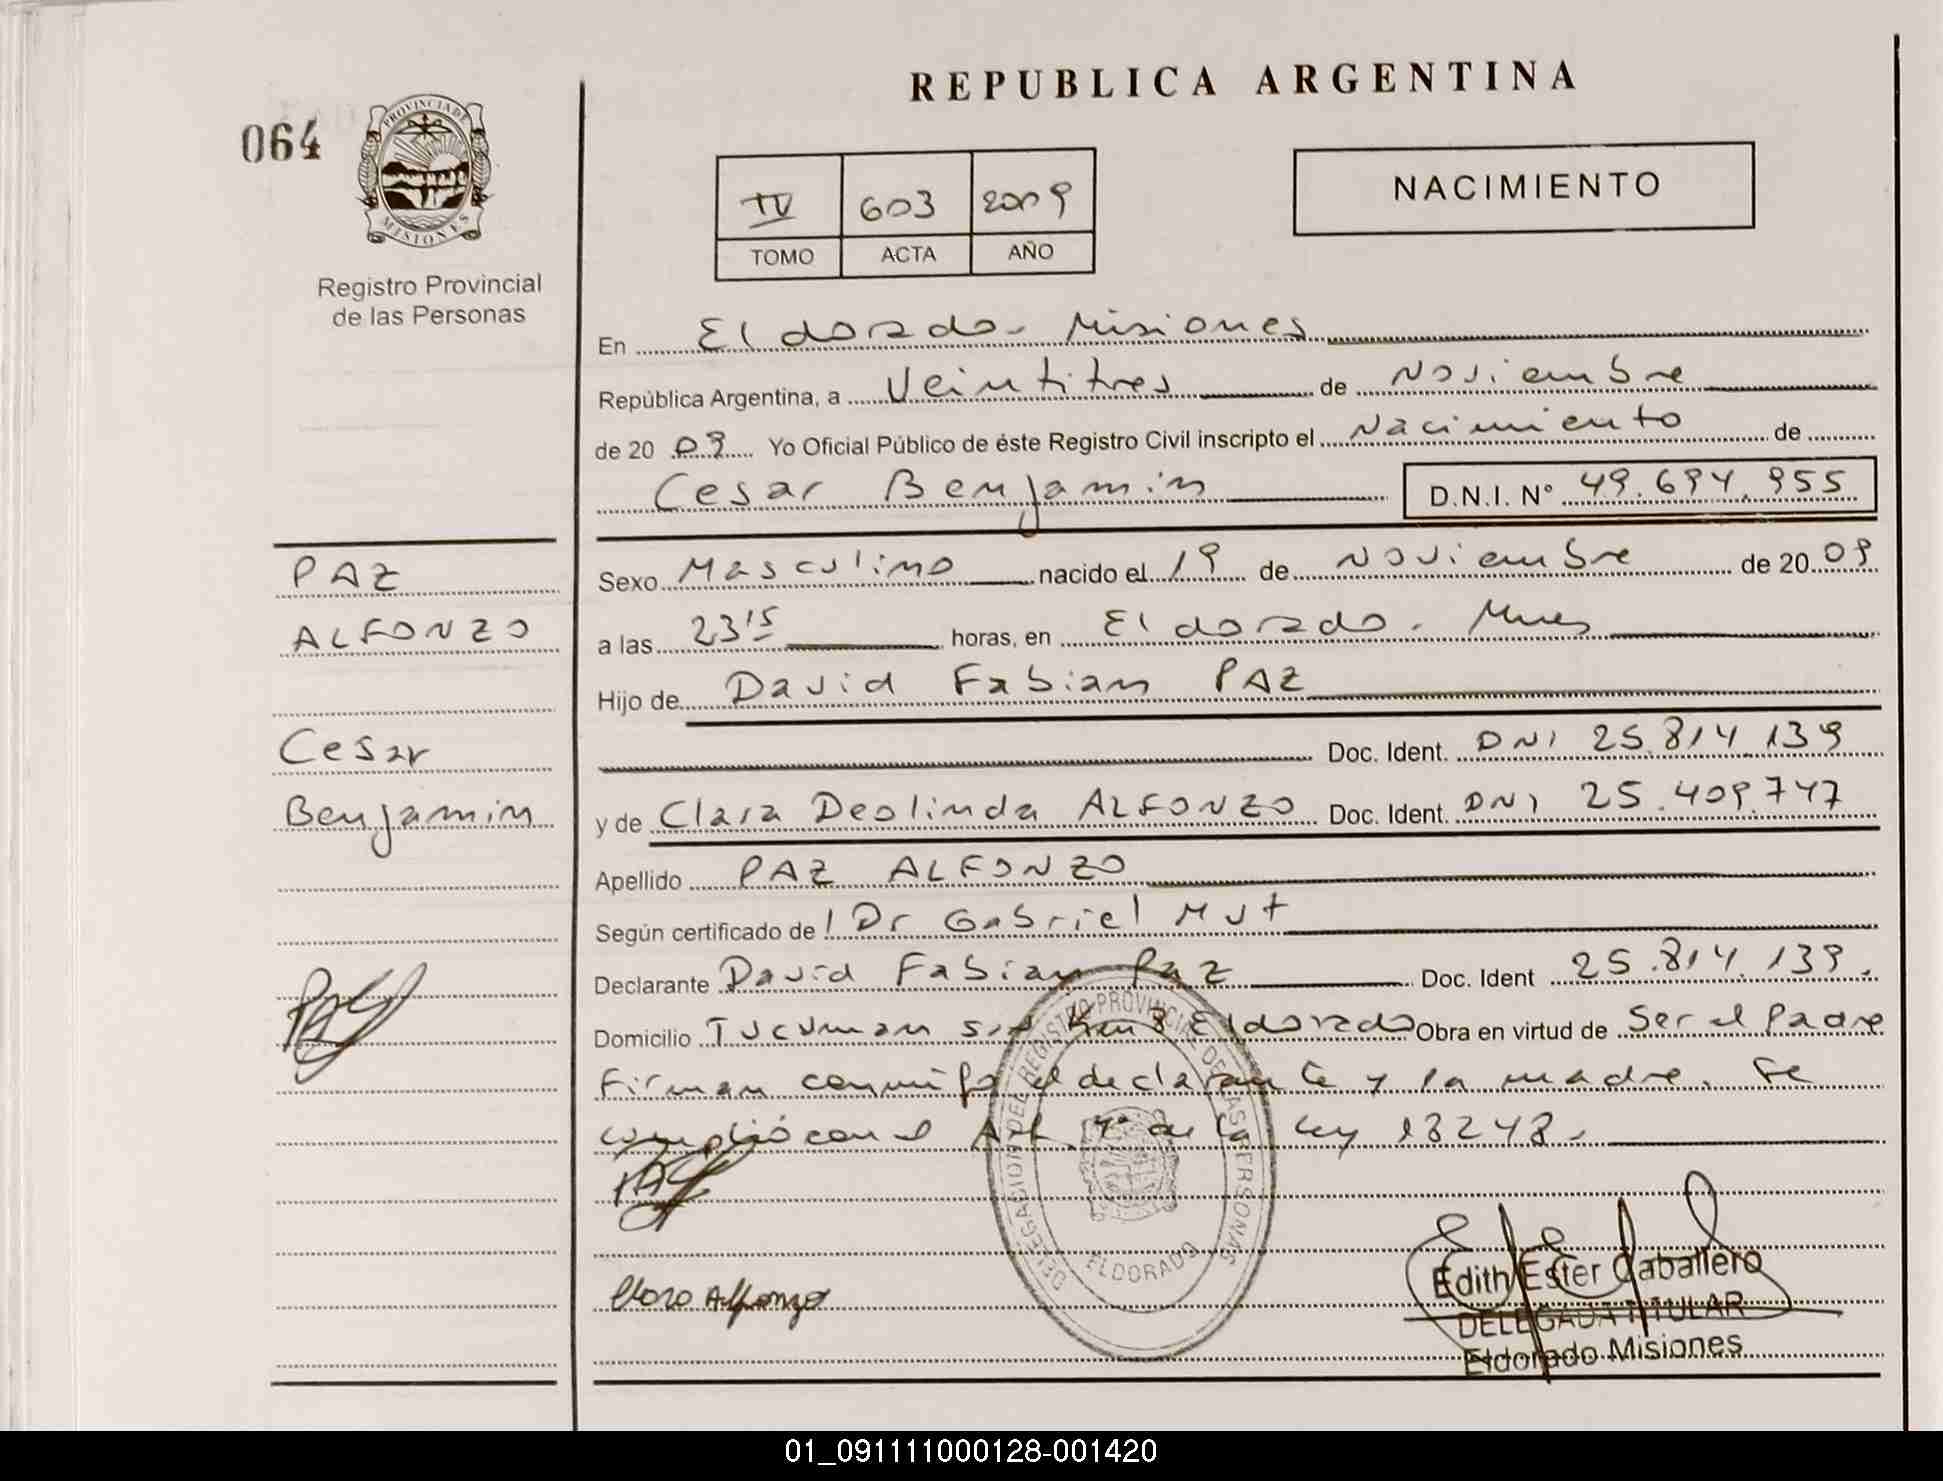 REPUBLICA ARGENTINA
064
PROVINCIA DE MISIONES
Registro Provincial
de las Personas
IV 603 2009
TOMO ACTA AÑO
NACIMIENTO
En Eldorado - Misiones
República Argentina, a Veintitres de Noviembre
de 2009 Yo Oficial Público de éste Registro Civil inscripto el Nacimiento de
Cesar Benjamin D.N.I. N° 49.694.955
PAZ
ALFONZO
Cesar
Benjamin
Sexo Masculino nacido el 19 de Noviembre de 2009
a las 23 15 horas, en Eldorado. Mnes
Hijo de David Fabian PAZ
Doc. Ident. DNI 25.814.139
y de Clara Deolinda ALFONZO Doc. Ident. DNI 25.409.747
Apellido PAZ ALFONZO
Según certificado de Dr Gabriel Mut
Declarante David Fabian Paz Doc. Ident 25.814.139.
Domicilio Tucuman s/n Km 3 Eldorado Obra en virtud de Ser el Padre
Firman conmigo el declarante y la madre. Se
cumplió con el Art. de la Ley 13248.
PAZ
Clara Alfonzo
DELEGACION DEL REGISTRO PROVINCIAL DE LAS PERSONAS
ELDORADO
Edith Ester Caballero
DELEGADA TITULAR
Eldorado Misiones
01_091111000128-001420